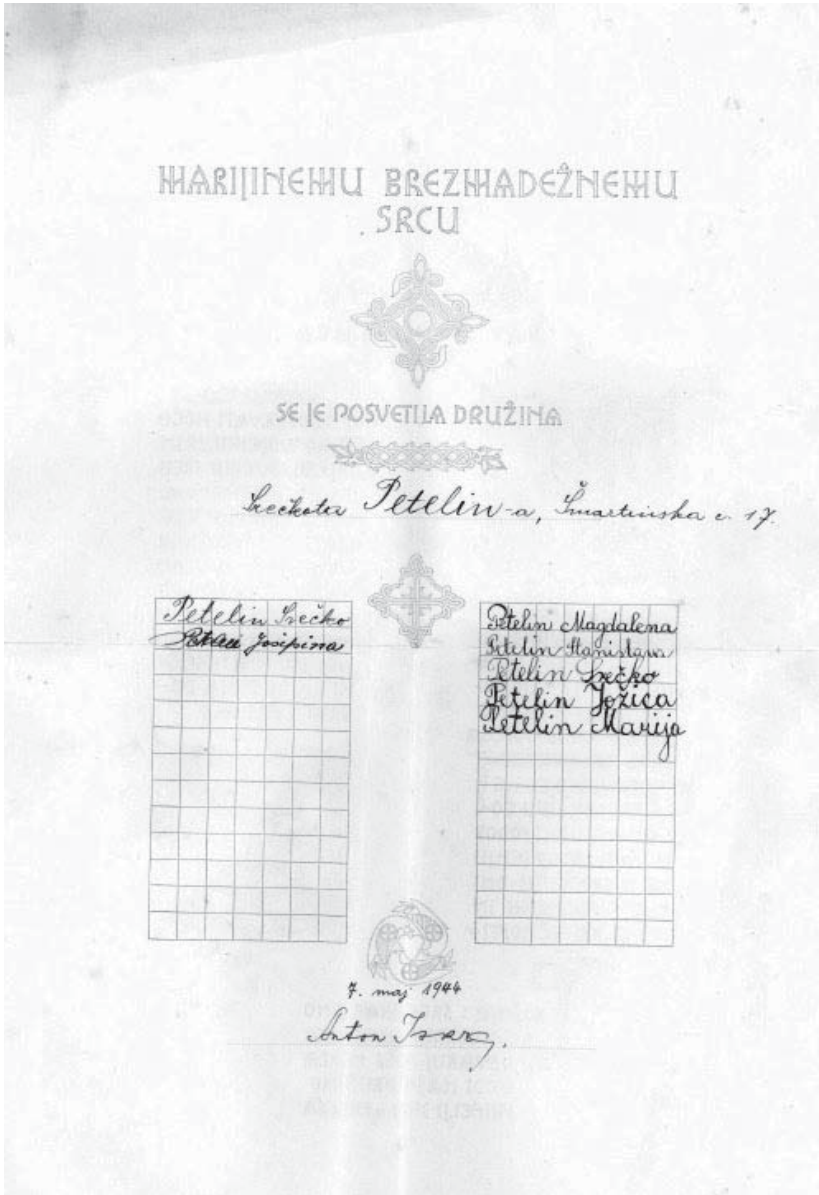 MARIJINEMU BREZMADEŽNEMU
SRCU
SE JE POSVETILA DRUŽINA
Srečkota Petelin-a, Šmartinska c. 17.
Petelin Srečko
Petelin Josipina
Petelin Magdalena
Petelin Stanislava
Petelin Srečko
Petelin Jožica
Petelin Marija
7. maj 1944
Anton